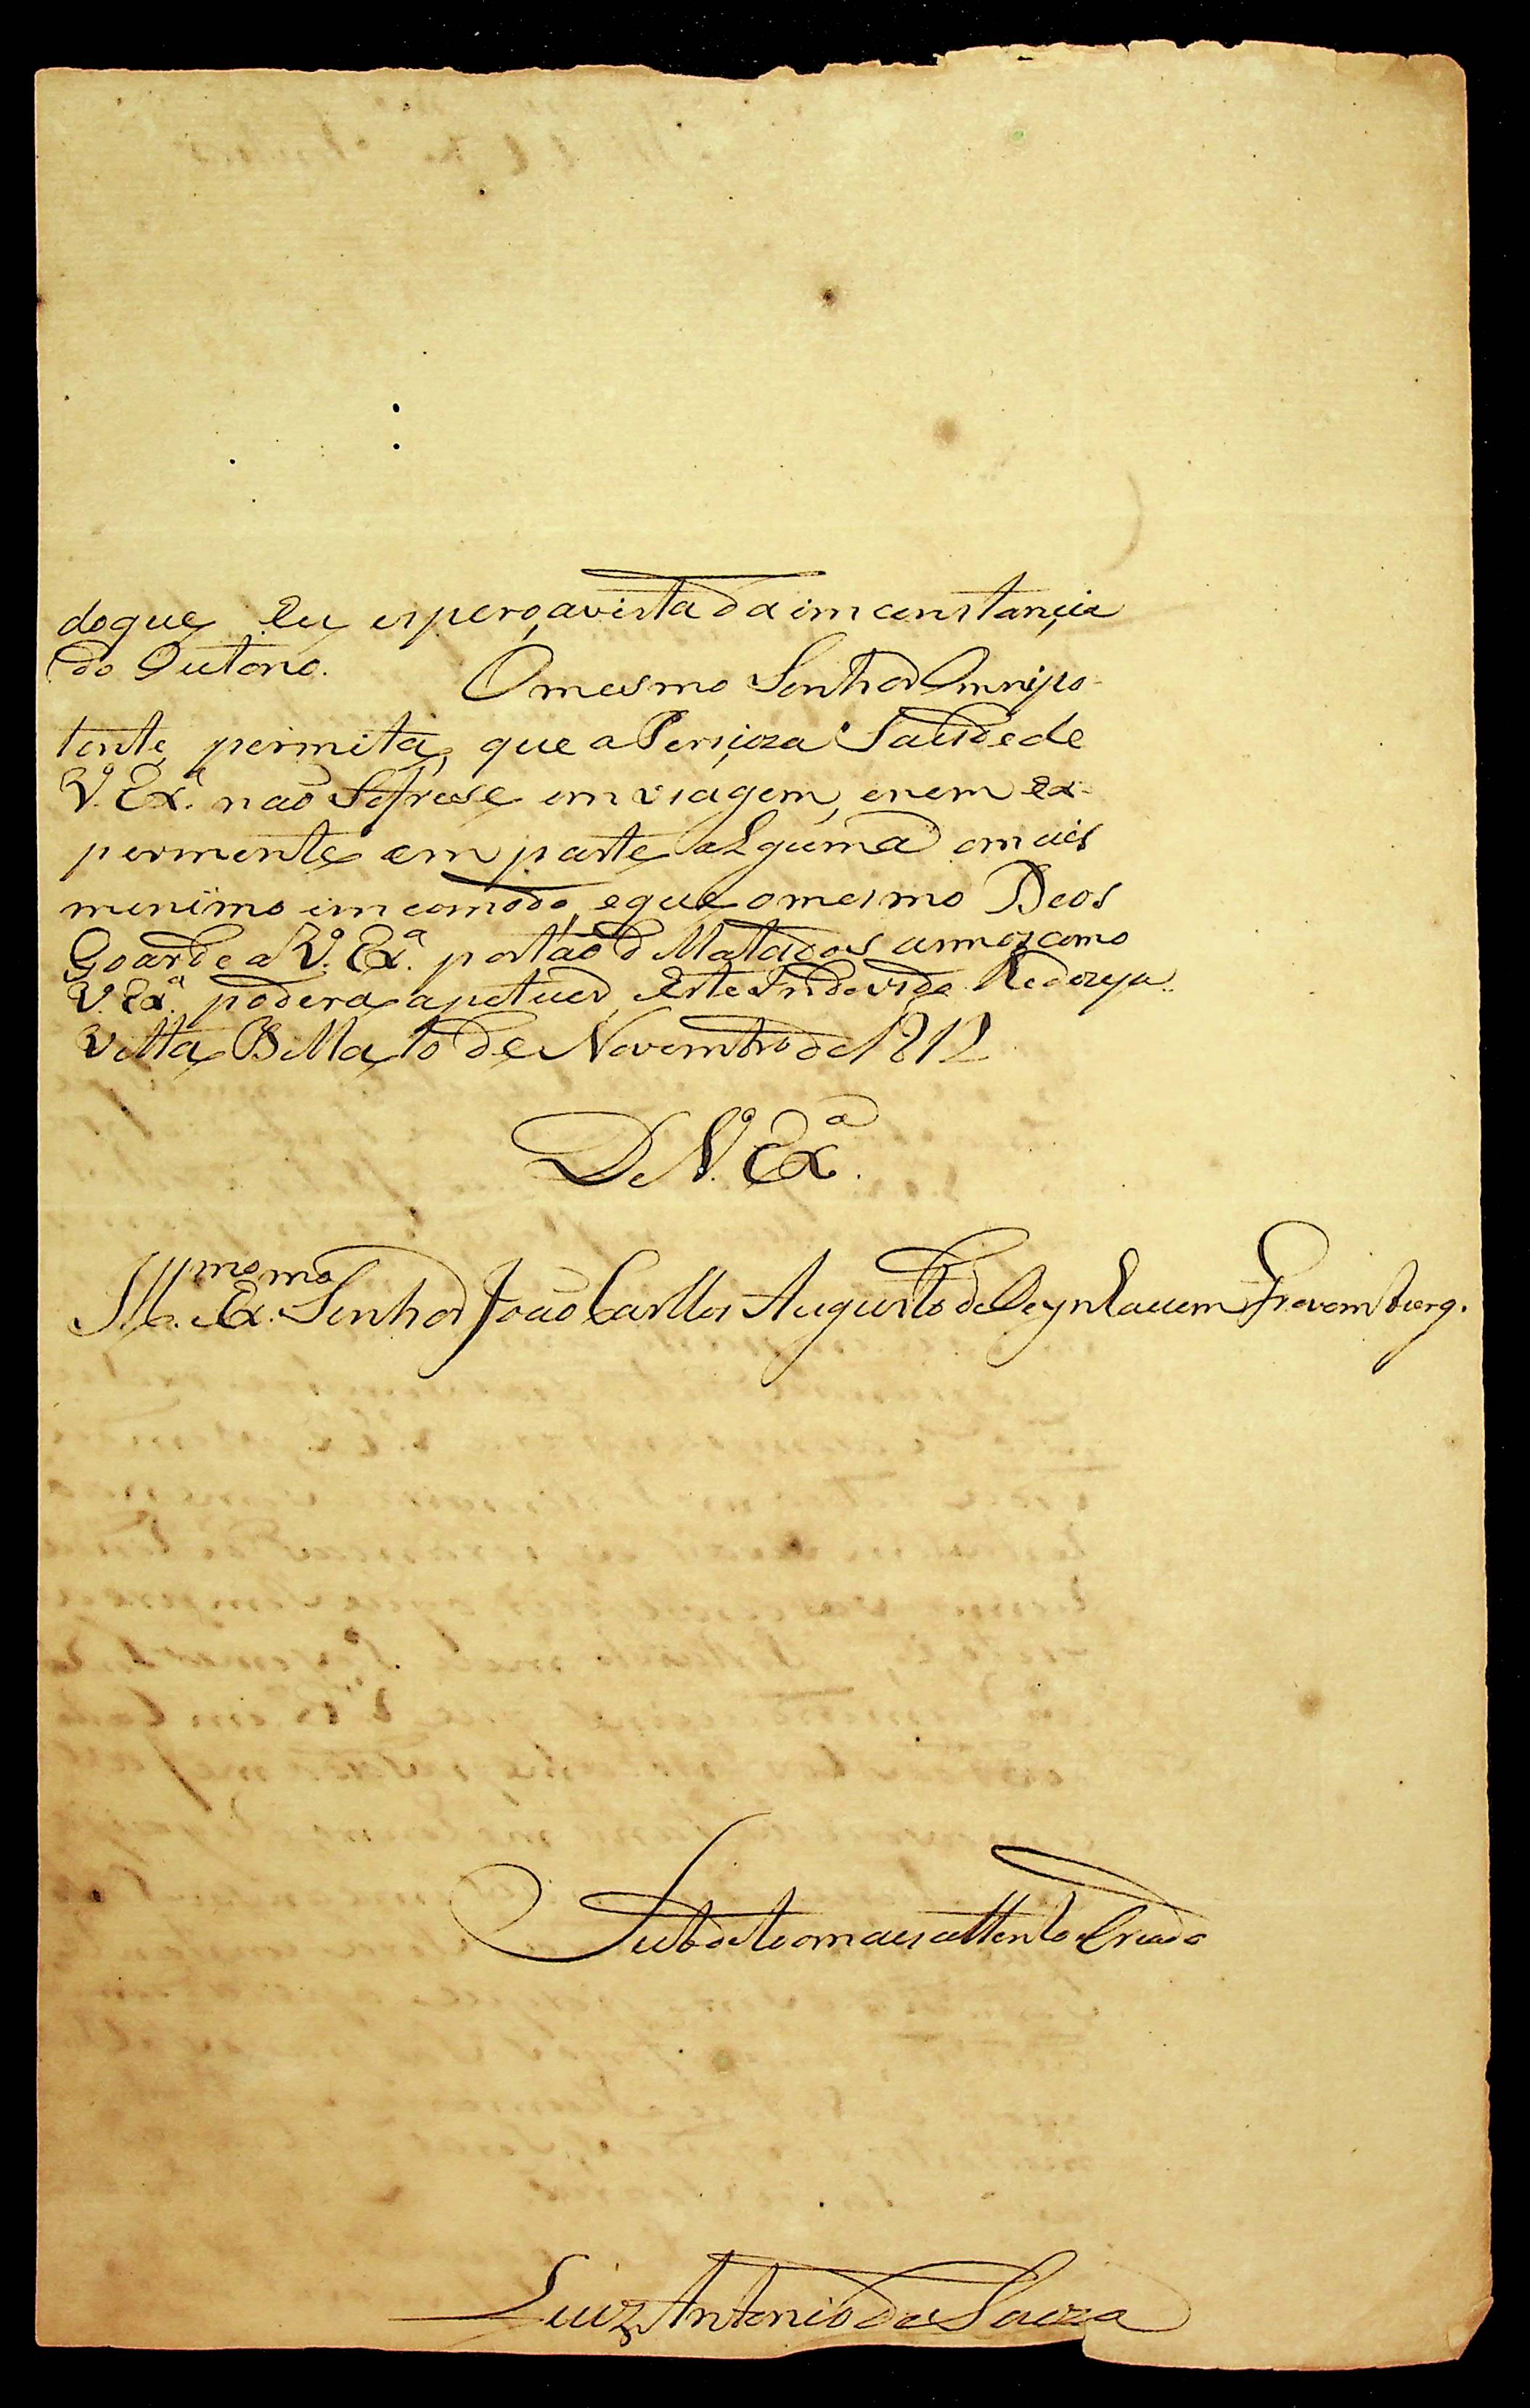 doque Eu espero, avista da imconstançia
do Outono. O mesmo Senhor Omnipo-
tente, permita, que a Persioza Saude de
V. Exª. naõ Sofrese em viagem, enem ex-
permente em parte alguma omais
minimo imcomodo, eque omesmo Deos
Goarde a V. Exª. por taõ dilatados annos como
V. Exª. podera apeteçer, este Individo
Villa Bella 10 de Novembro de 1812
De V. Exª.
Illmo. Exmo. Senhor João Carllos Augusto de Oeynlauem Grevemburg.
Subdeto omais attento Criado
Luiz Antonio de Souza